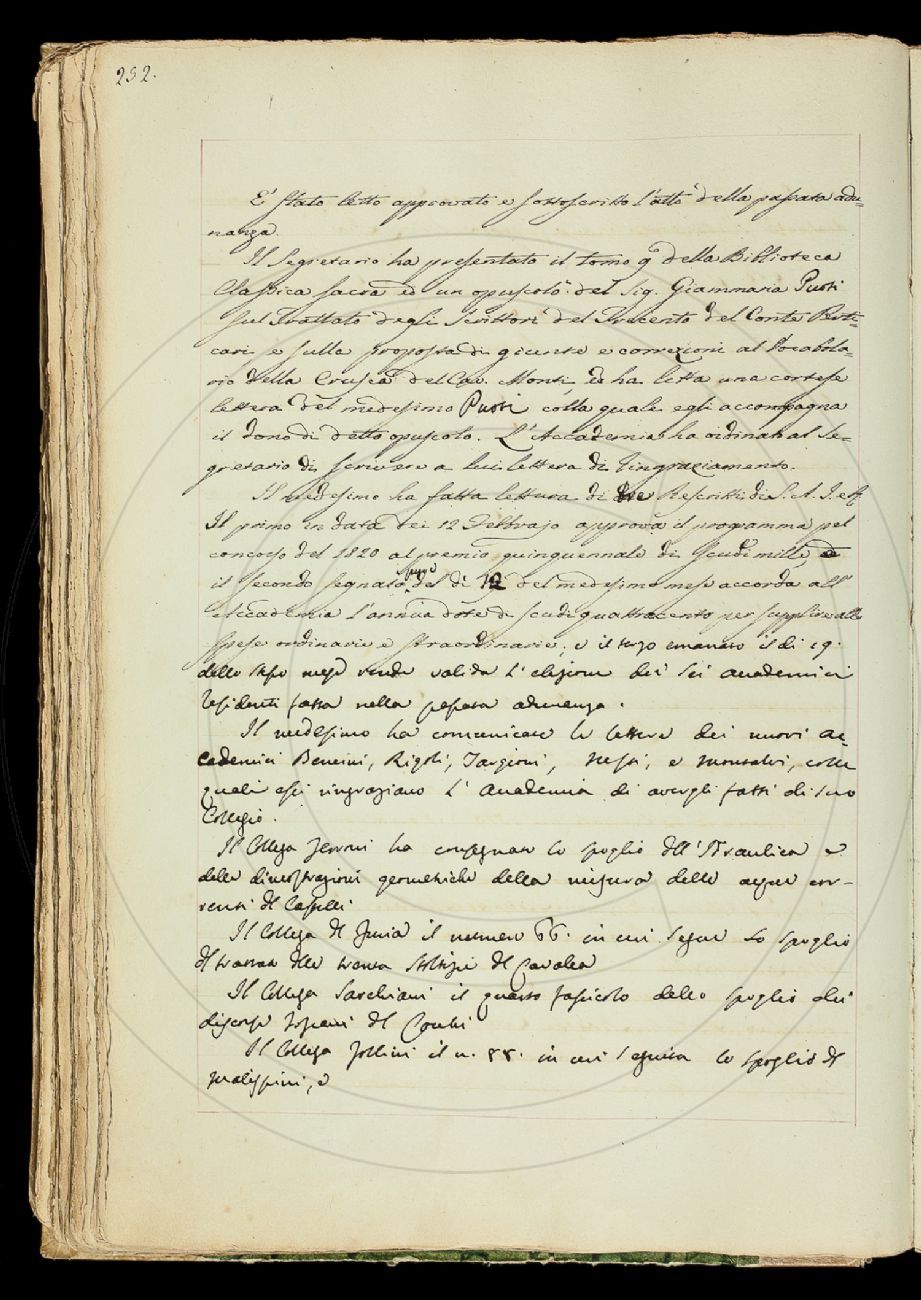 292.
E' stato letto approvato e sottoscritto l'atto della passata adu=
nanza.
Il Segretario ha presentato il tomo 9º della Biblioteca
Classica sacra ed un opuscolo del Sig. Giammaria Puoti
sul Trattato degli Scrittori del Trecento del Conte Perti=
cari e sulla proposta di giunte e correzioni al Vocabola=
rio della Crusca del Cav. Monti, ed ha letta una cortese
lettera del medesimo Puoti colla quale egli accompagna
il dono di detto opuscolo. L'Accademia ha ordinato al Se=
gretario di scrivere a lui lettera di ringraziamento.
Il medesimo ha fatta lettura di tre Rescritti di S. A. I. e R.
Il primo in data dei 12 Febbrajo approva il programma pel
concorso del 1820 al premio quinquennale di scudi mille,
il secondo segnato del dì 12 del medesimo mese accorda all'
Accademia l'annua dote di scudi quattrocento per supplire alle
spese ordinarie e straordinarie; e il terzo emanato il dì 19.
dello stesso mese rende valida l'elezione dei sei Accademici
residenti fatta nella passata adunanza.
Il medesimo ha comunicate le lettere dei nuovi ac=
cademici Bencini, Rigoli, Targioni, Nesti, e colle
quali essi ringraziano l'Accademia di avergli fatti di suo
Collegio.
Il Collega Ferroni ha consegnato lo spoglio dell'Idraulica e
delle dimostrazioni geometriche della misura delle acque cor-
renti del Castelli
Il Collega Del Furia il numero 66. in cui segue lo spoglio
del trattato delle trenta Stoltizie del Cavalca
Il Collega Sarchiani il quarto fascicolo dello spoglio dei
discorsi Toscani del Cocchi
Il Collega Follini il n. 88. in cui seguita lo spoglio del
Malispini, e